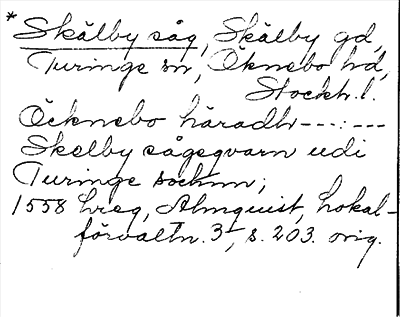 * Skälby såg, Skälby gd,
Turinge sn, Öknebo hd,
Stockh. l.
Öcknebo häradh---:---
Skelby sågeqvarn udi
Turinge sochnn;
1558 hreg, Almquist, Lokal-
förvaltn. 3, s. 203. orig.